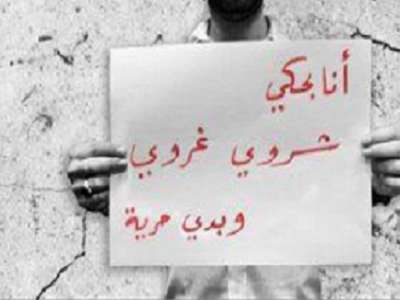 أنا بحكي
شروي غروي
وبدي حرية